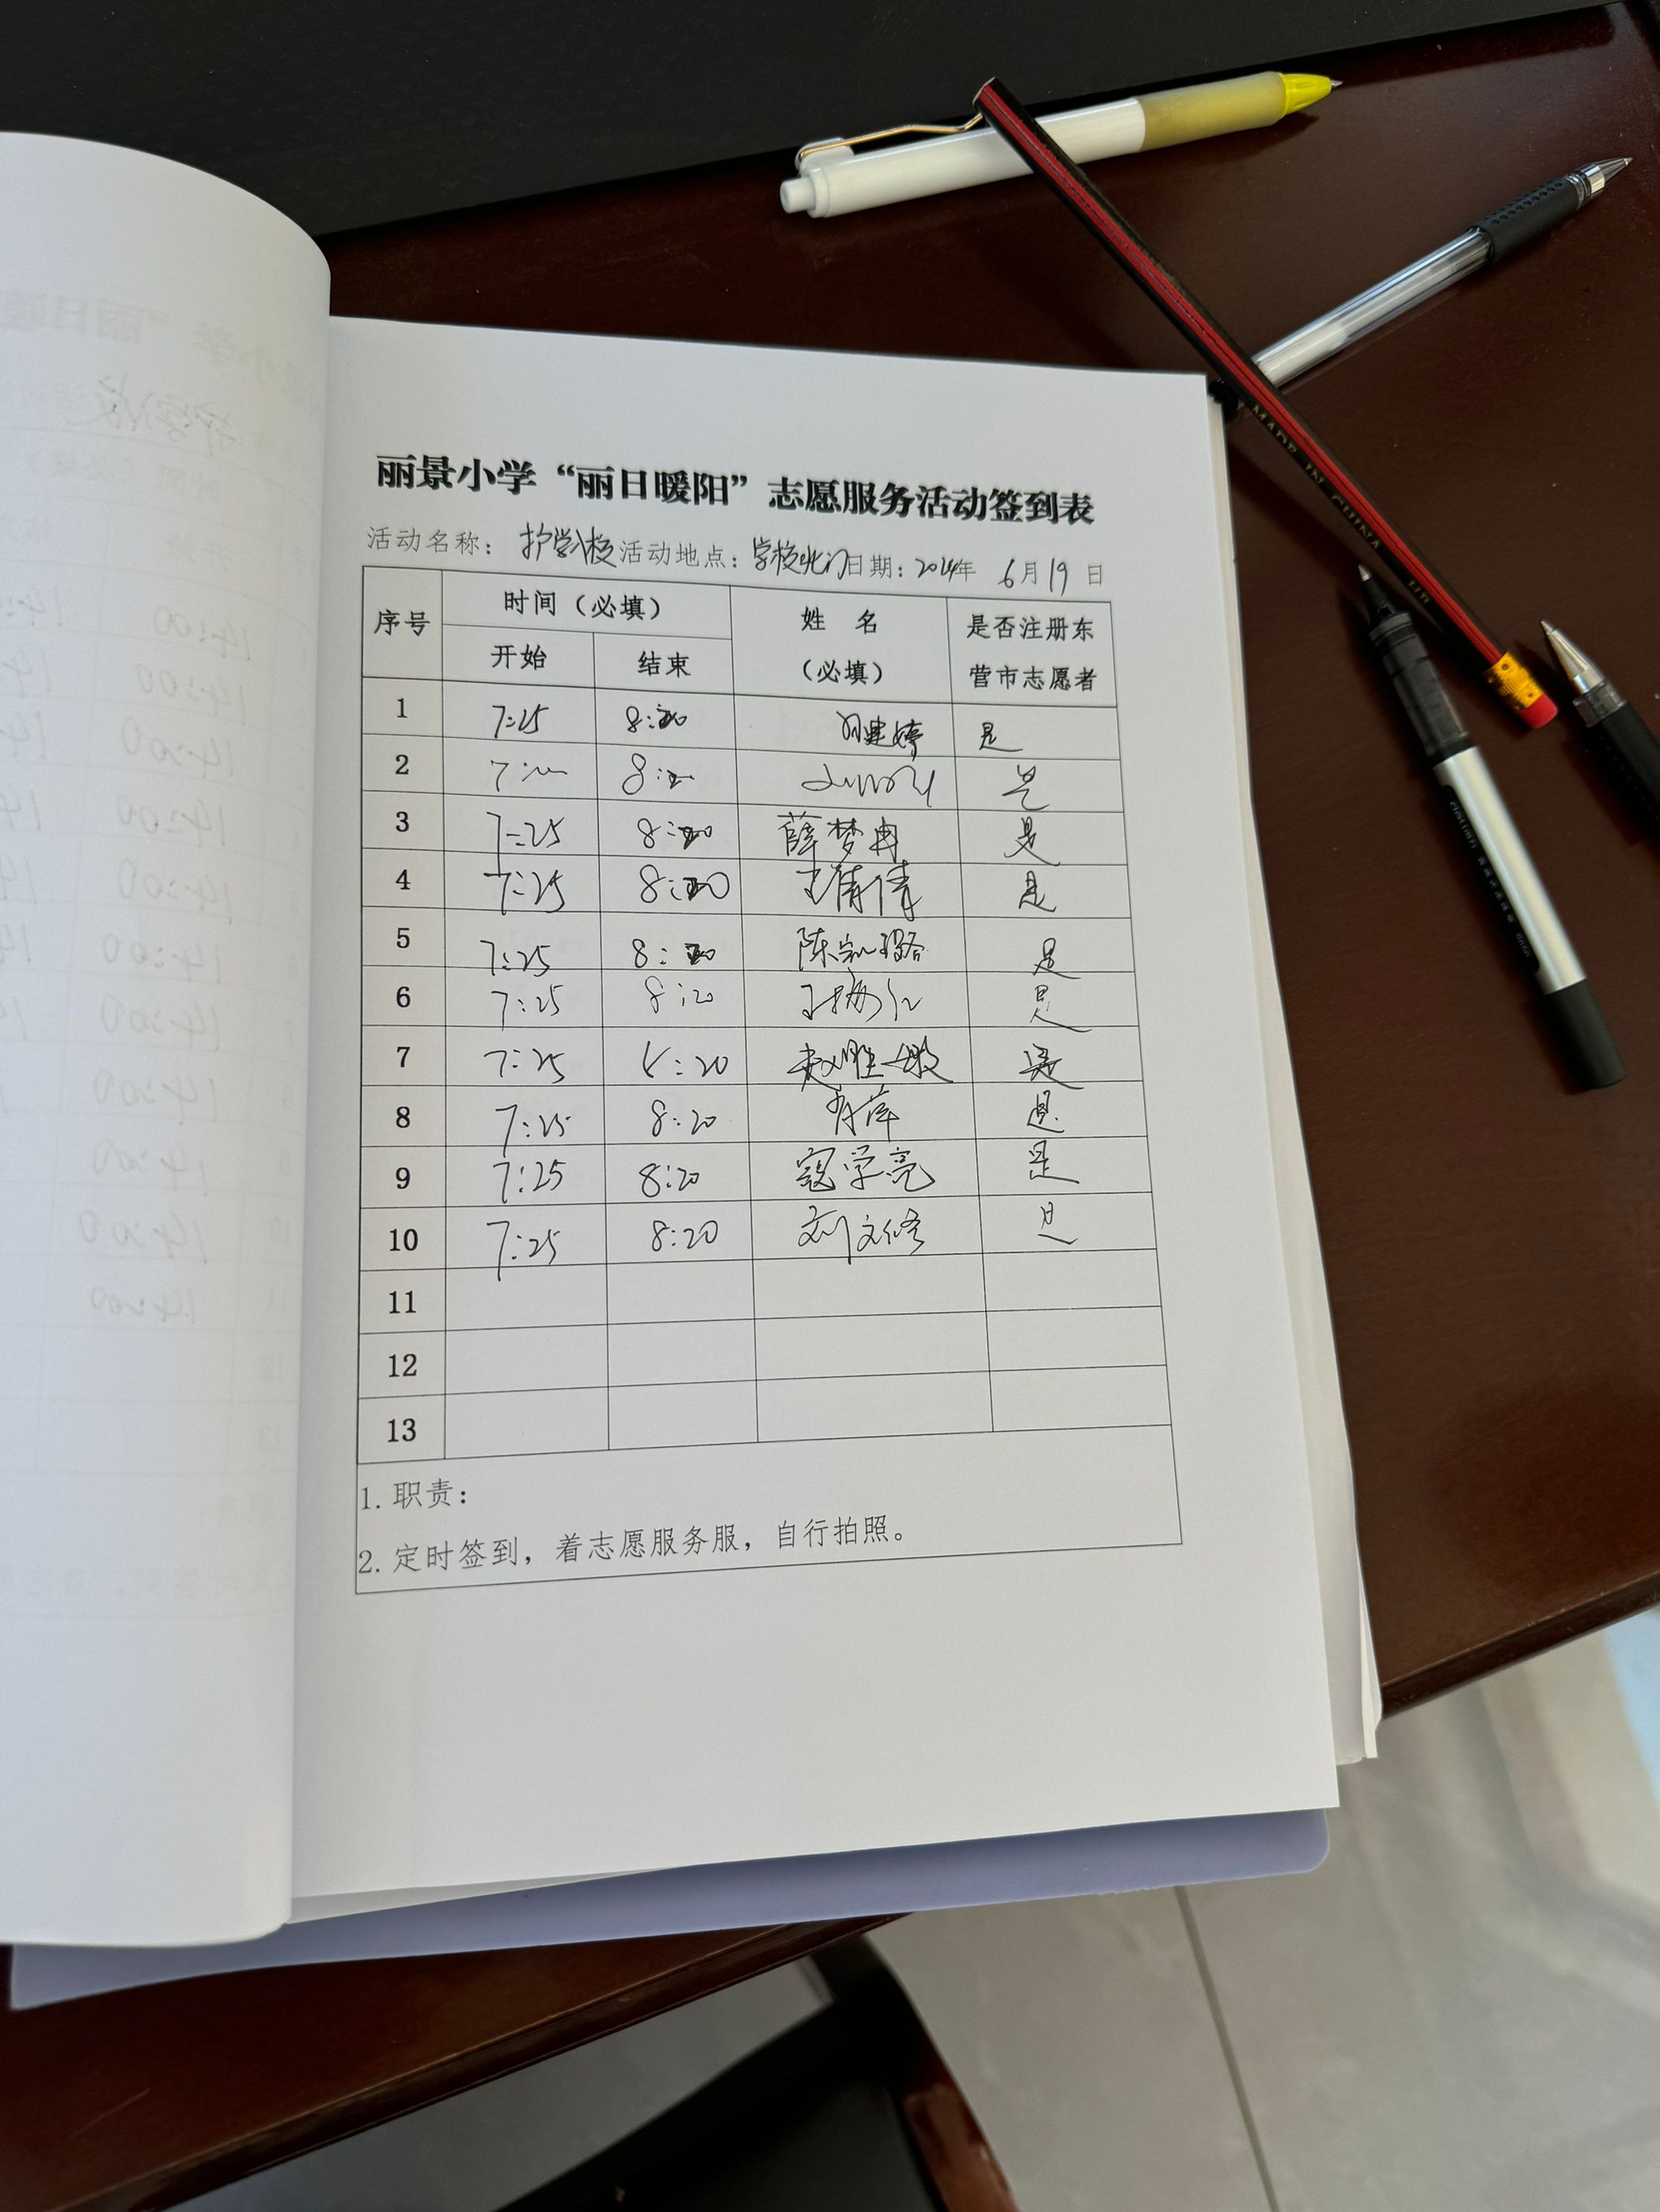 丽景小学“丽日暖阳”志愿服务活动签到表
活动名称：护学入校 活动地点：学校北门 日期：2024年 6月19日
序号 时间（必填） 姓 名（必填） 是否注册东营市志愿者
开始 结束
1 7:25 8:20 是
2 是
3 7:25 8:20 薛梦冉 是
4 7:25 8:20 王倩倩 是
5 7:25 8:20 是
6 7:25 8:20 是
7 7:25 8:20 是
8 7:25 8:20 是
9 7:25 8:20 寇学亮 是
10 7:25 8:20 刘文修 是
11
12
13
1. 职责：
2. 定时签到，着志愿服务服，自行拍照。
MADE IN CHINA
HB